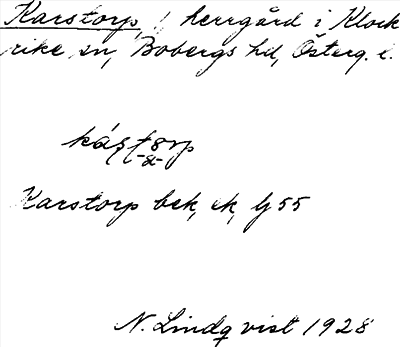 Karstorp, herrgård i Klock
rike sn, Bobergs hd, Österg. l.
Karstorp bek, ek, lj 55
N. Lindqvist 1928